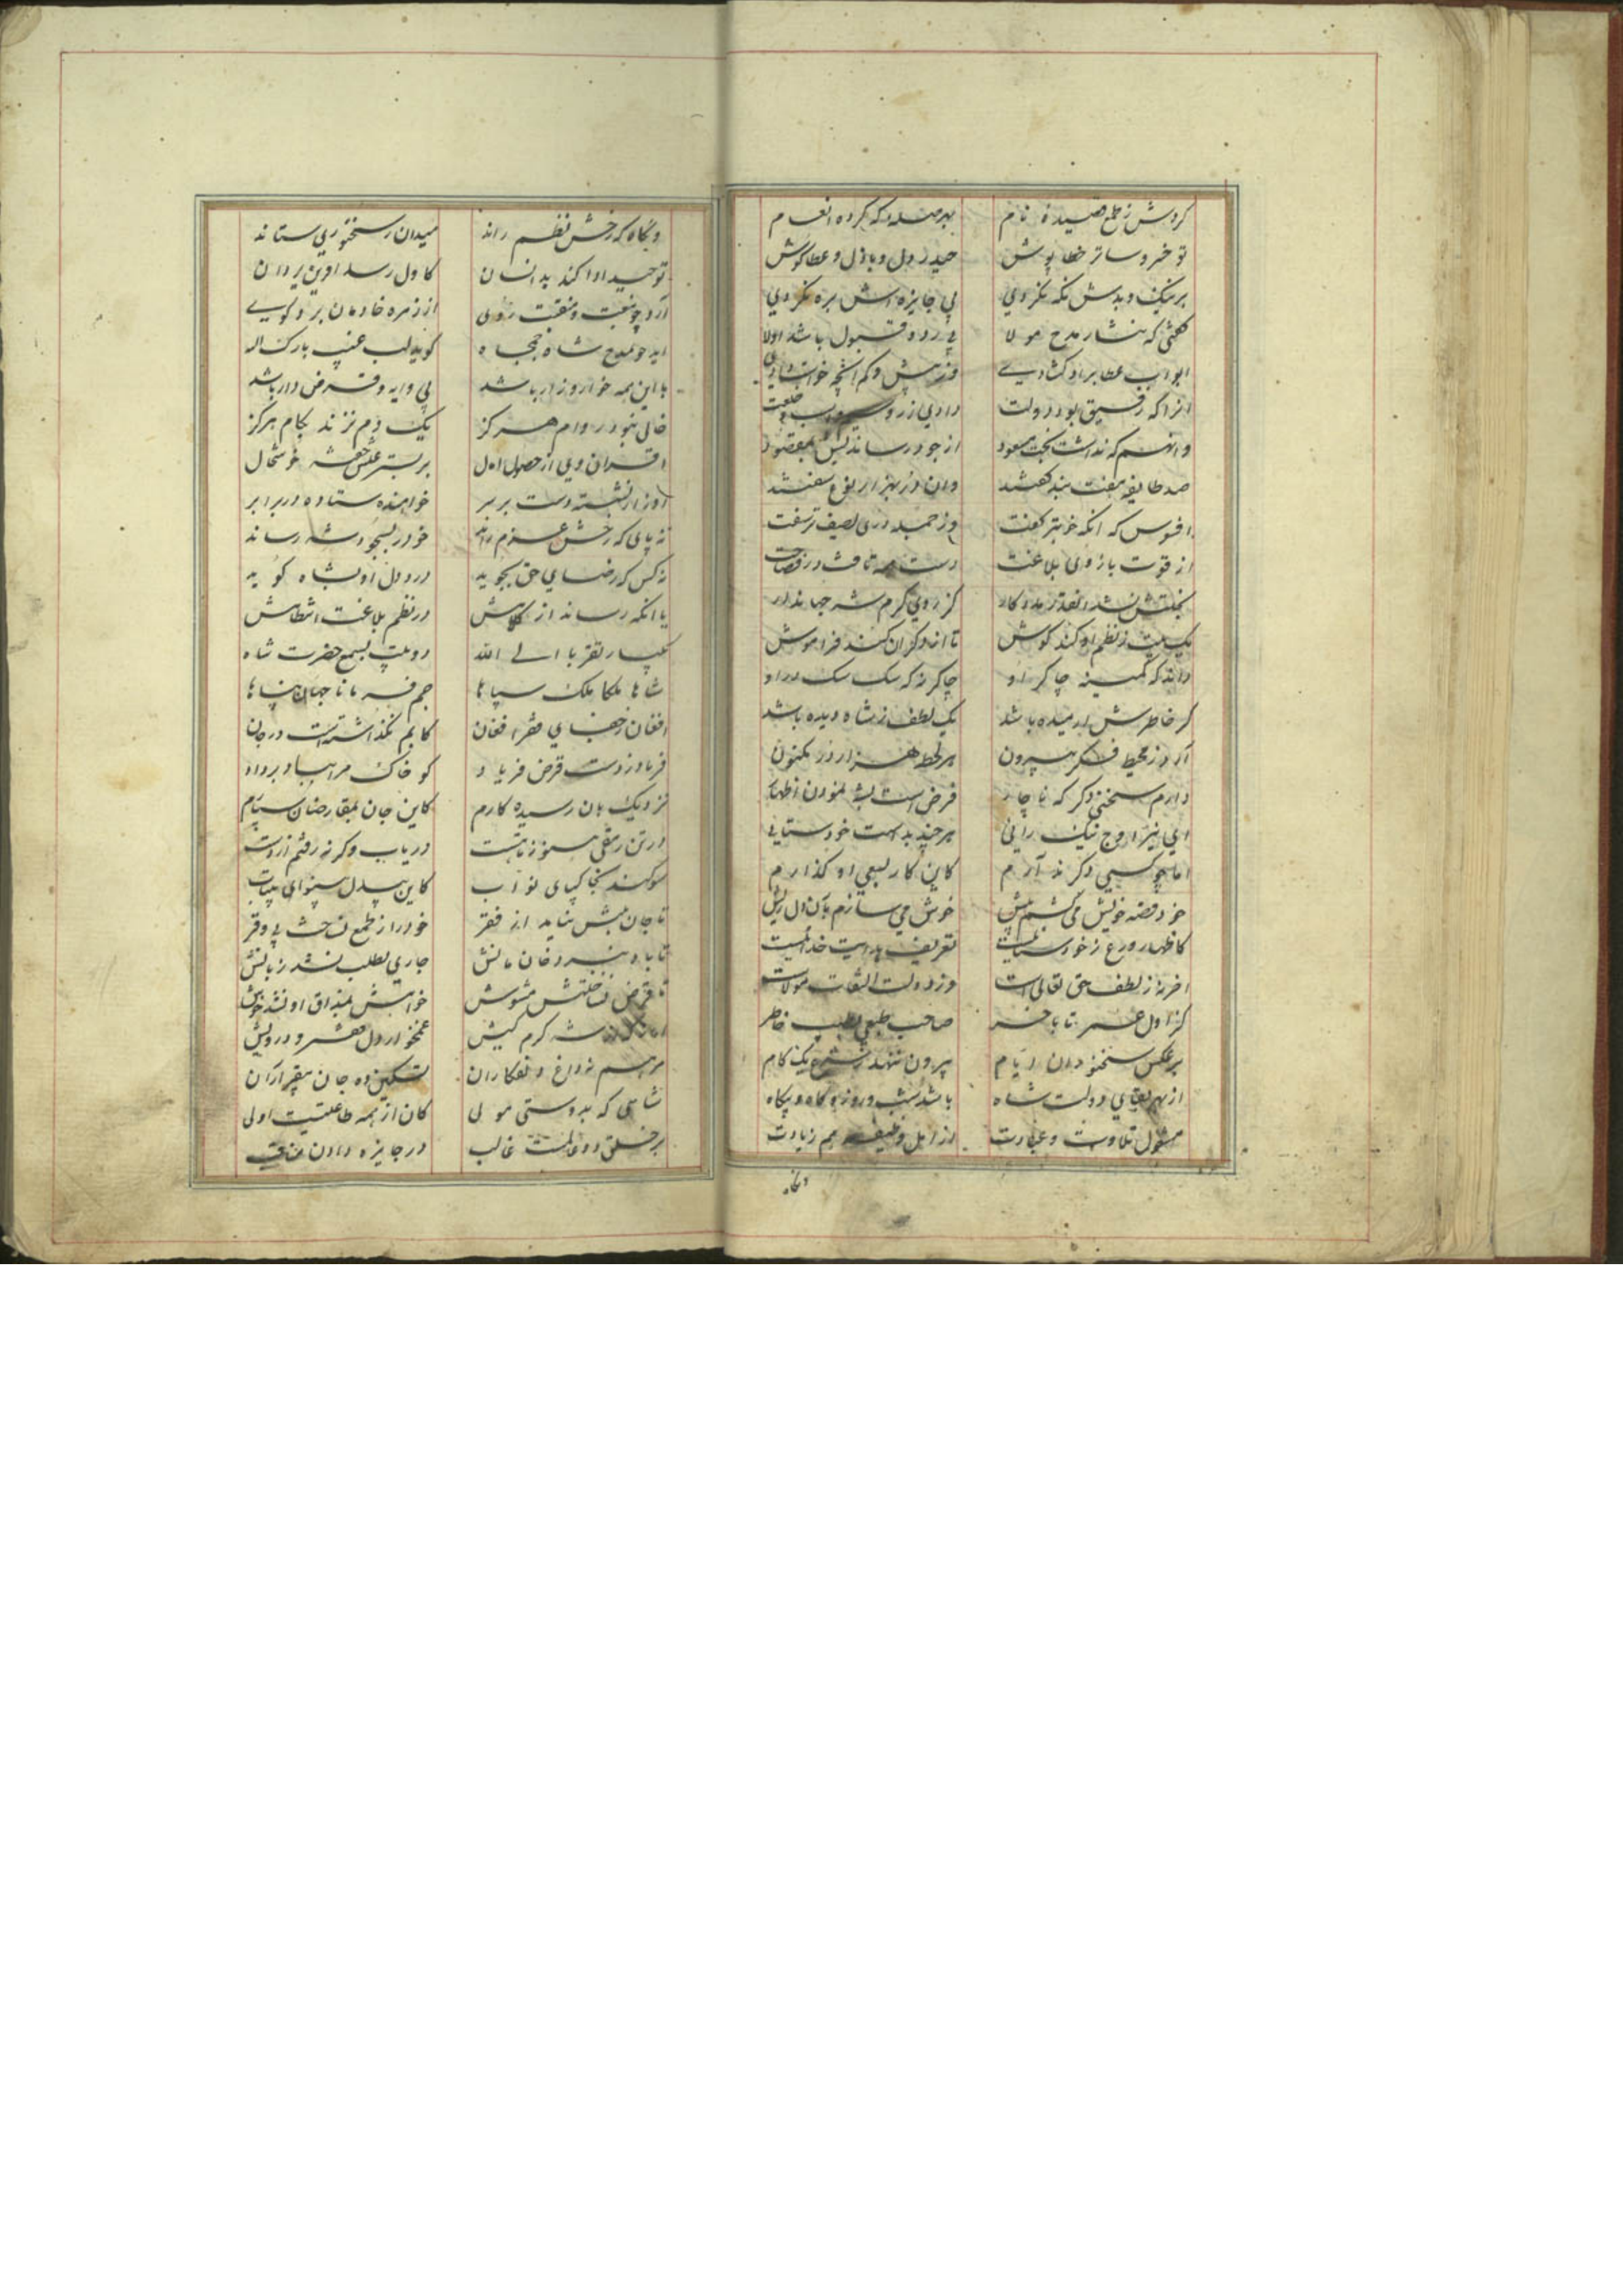 کردش ز طمع قصیده نام بهر صله که کرده انعام
تو خسرو ساتر خطاپوش حیدر دل و باذل و عطا کوش
بر نیک و بدش نکه نکردی پی جایزه اش بره نکردی
گفتی که نثار مدح مولا بی رد و قبول باشد اولا
ابواب عطا بر او کشادی وز بیش و کم آنچه خواست دادی
انرا که رفیق بود دولت دادی زر و خلعت
وانهم که نداشت بخت مسعود از جود رساندیش بمقصود
صد طایفه مفت بند گفتند وان در هزار نوع سفتند
افسوس که انکه خوبتر گفت وز جمله دری لطیف تر سفت
از قوت بازوی بلاغت دست همه تافت در فصاحت
بختش نشد انقدر مددکار کز روی کرم شه جهاندار
یک بیت ز نظم او کند کوش تا از دکران کند فراموش
داند که کمینه چاکر او چاکر نه که سک سک در او
کر خاطرش ارمیده باشد یک لطف ز شاه دیده باشد
آرد ز محیط فکر بیرون هر لحظه هزار در مکنون
دارم سخنی دکر که ناچار فرض است بشه نمودن اظهار
ای نیر اوج نیک رایی هر چند بد است خودستایی
اما چو کسی دکر ندارم کاین کار بسعی او کذارم
خود قصه خویش می کشم پیش خوش می سازم بان دل ریش
کاظهار ورع ز خودستاییست تعریف هدایت خداییست
افزار لطف حق تعالی است وز دولت التفات مولاست
کز اول عمر تا باخر صاحب طبعی بطیب خاطر
بر عکس سخنوران ایام بیرون ننهد ز شرع یک کام
از بهر بقای دولت شاه باشد شب و روز و کاه و بیکاه
مشغول تلاوت و عبادت از اهل وظیفه هم زیادت
وانکاه
وانکاه که رخش نظم راند میدان سخنوری ستاند
توحید ادا کند بدانسان کاول رسد اوین یزدان
آرد چو بنعت و منقبت روی از زمره خادمان برد کوی
آید چو بمدح شاه جمجاه کوید لب غیب بارک الله
با این همه خوار و زار باشد بی وایه و قرض دار باشد
خالی نبود ز وام هرکز یک دم نزند بکام هرکز
اقران وی از حصول امال بر بستر عیش خفته خوشحال
او زار نشسته دست بر سر خواهنده ستاده در برابر
نه پای که رخش عزم راند خود را بسجود شه رساند
نه کس که رضای حق بجوید درد دل او بشاه کوید
یا انکه رساند از کلامش در نظم بلاغت انتظامش
یکبار تقربا الی الله دو بیت بسمع حضرت شاه
شاها ملکا ملک سپاها جم فرمانا جهان پناها
افغان ز جفای فقر افغان کابم نکذاشته است در جان
فریاد ز دست قرض فریاد کو خاک مرا بباد برداد
نزدیک بان رسیده کارم کاین جان بمتقاضیان سپارم
در تن رمقی هنوز باقیست دریاب وکرنه رفتم از دست
سوکند بخاکپای نواب کاین بیدل بینوای بیتاب
تا جان بلبش نیامد از فقر خود را ز طمع نساخت بی وقر
تا باد نبرد خان و مانش جاری بطلب نشد زبانش
تا قرض نساختش مشوش خواهش بمذاق او نشد خوش
شه کرم کیش غمخوار دل فقیر و درویش
مرهم نه داغ دلفکاران تسکین ده جان بیقراران
شاهی که بدوستی مولی کان از همه طاعتیست اولی
بر خلق دو عالمست غالب در جایزه دادن مناقب